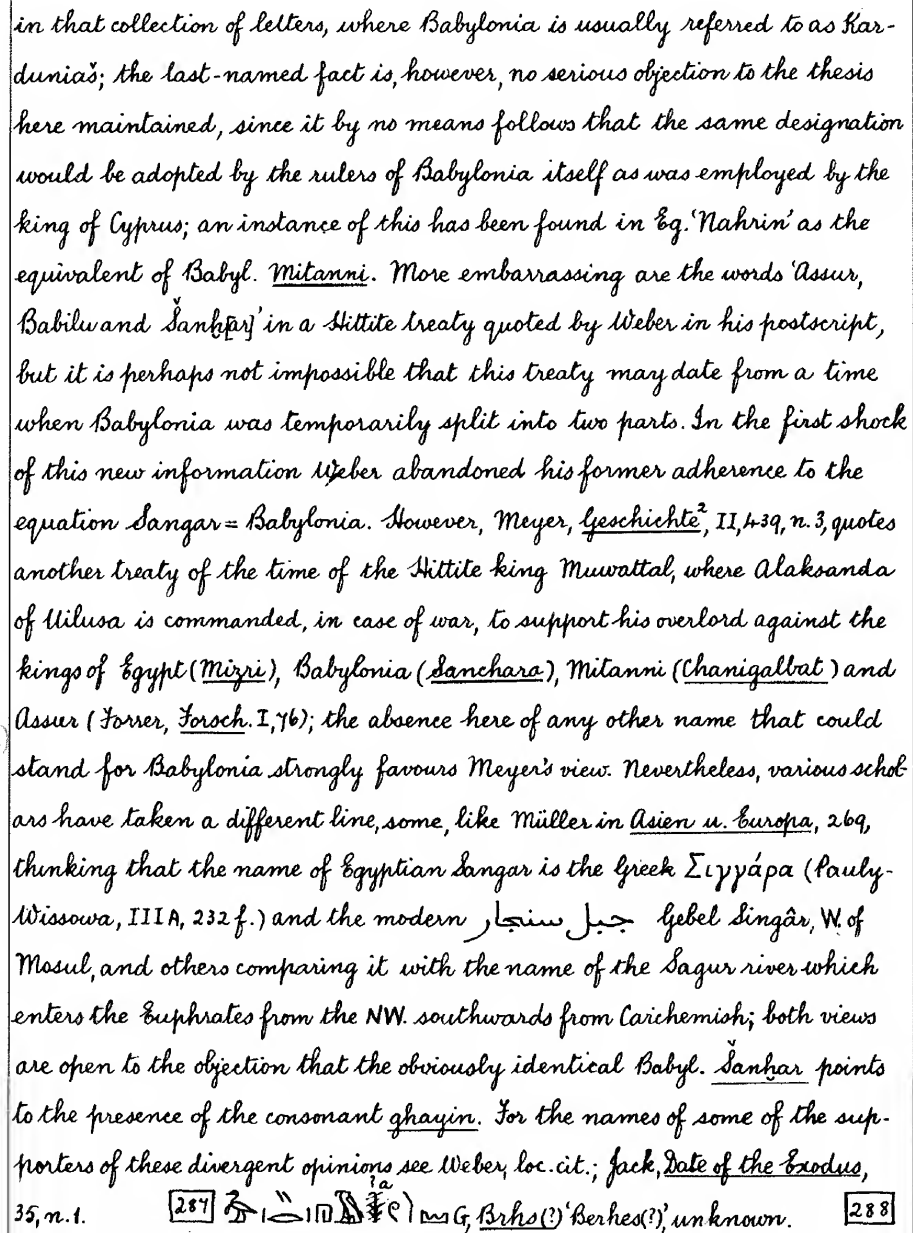 in that collection of letters, where Babylonia is usually referred to as Kar-
duniaš; the last-named fact is, however, no serious objection to the thesis
here maintained, since it by no means follows that the same designation
would be adopted by the rulers of Babylonia itself as was employed by the
king of Cyprus; an instance of this has been found in Eg. 'Nahrin' as the
equivalent of Babyl. Mitanni. More embarrassing are the words 'Assur,
Babilu and Šanḫ[ar]' in a Hittite treaty quoted by Weber in his postscript,
but it is perhaps not impossible that this treaty may date from a time
when Babylonia was temporarily split into two parts. In the first shock
of this new information Weber abandoned his former adherence to the
equation Sangar = Babylonia. However, Meyer, Geschichte², II, 439, n. 3, quotes
another treaty of the time of the Hittite king Muwattal, where Alaksanda
of Uilusa is commanded, in case of war, to support his overlord against the
kings of Egypt (Mizri), Babylonia (Sanchara), Mitanni (Chanigalbat) and
Assur (Forrer, Forsch. I, 76); the absence here of any other name that could
stand for Babylonia strongly favours Meyer's view. Nevertheless, various schol-
ars have taken a different line, some, like Müller in Asien u. Europa, 269,
thinking that the name of Egyptian Sangar is the Greek Σιγγάρα (Pauly-
Wissowa, III A, 232 f.) and the modern جبل سنجار Gebel Singâr, W. of
Mosul, and others comparing it with the name of the Sagur river which
enters the Euphrates from the NW. southwards from Carchemish; both views
are open to the objection that the obviously identical Babyl. Šanḫar points
to the presence of the consonant ghayin. For the names of some of the sup-
porters of these divergent opinions see Weber, loc. cit.; Jack, Date of the Exodus,
35, n. 1. 287 G, Brhs(?) 'Berhes(?)', unknown. 288